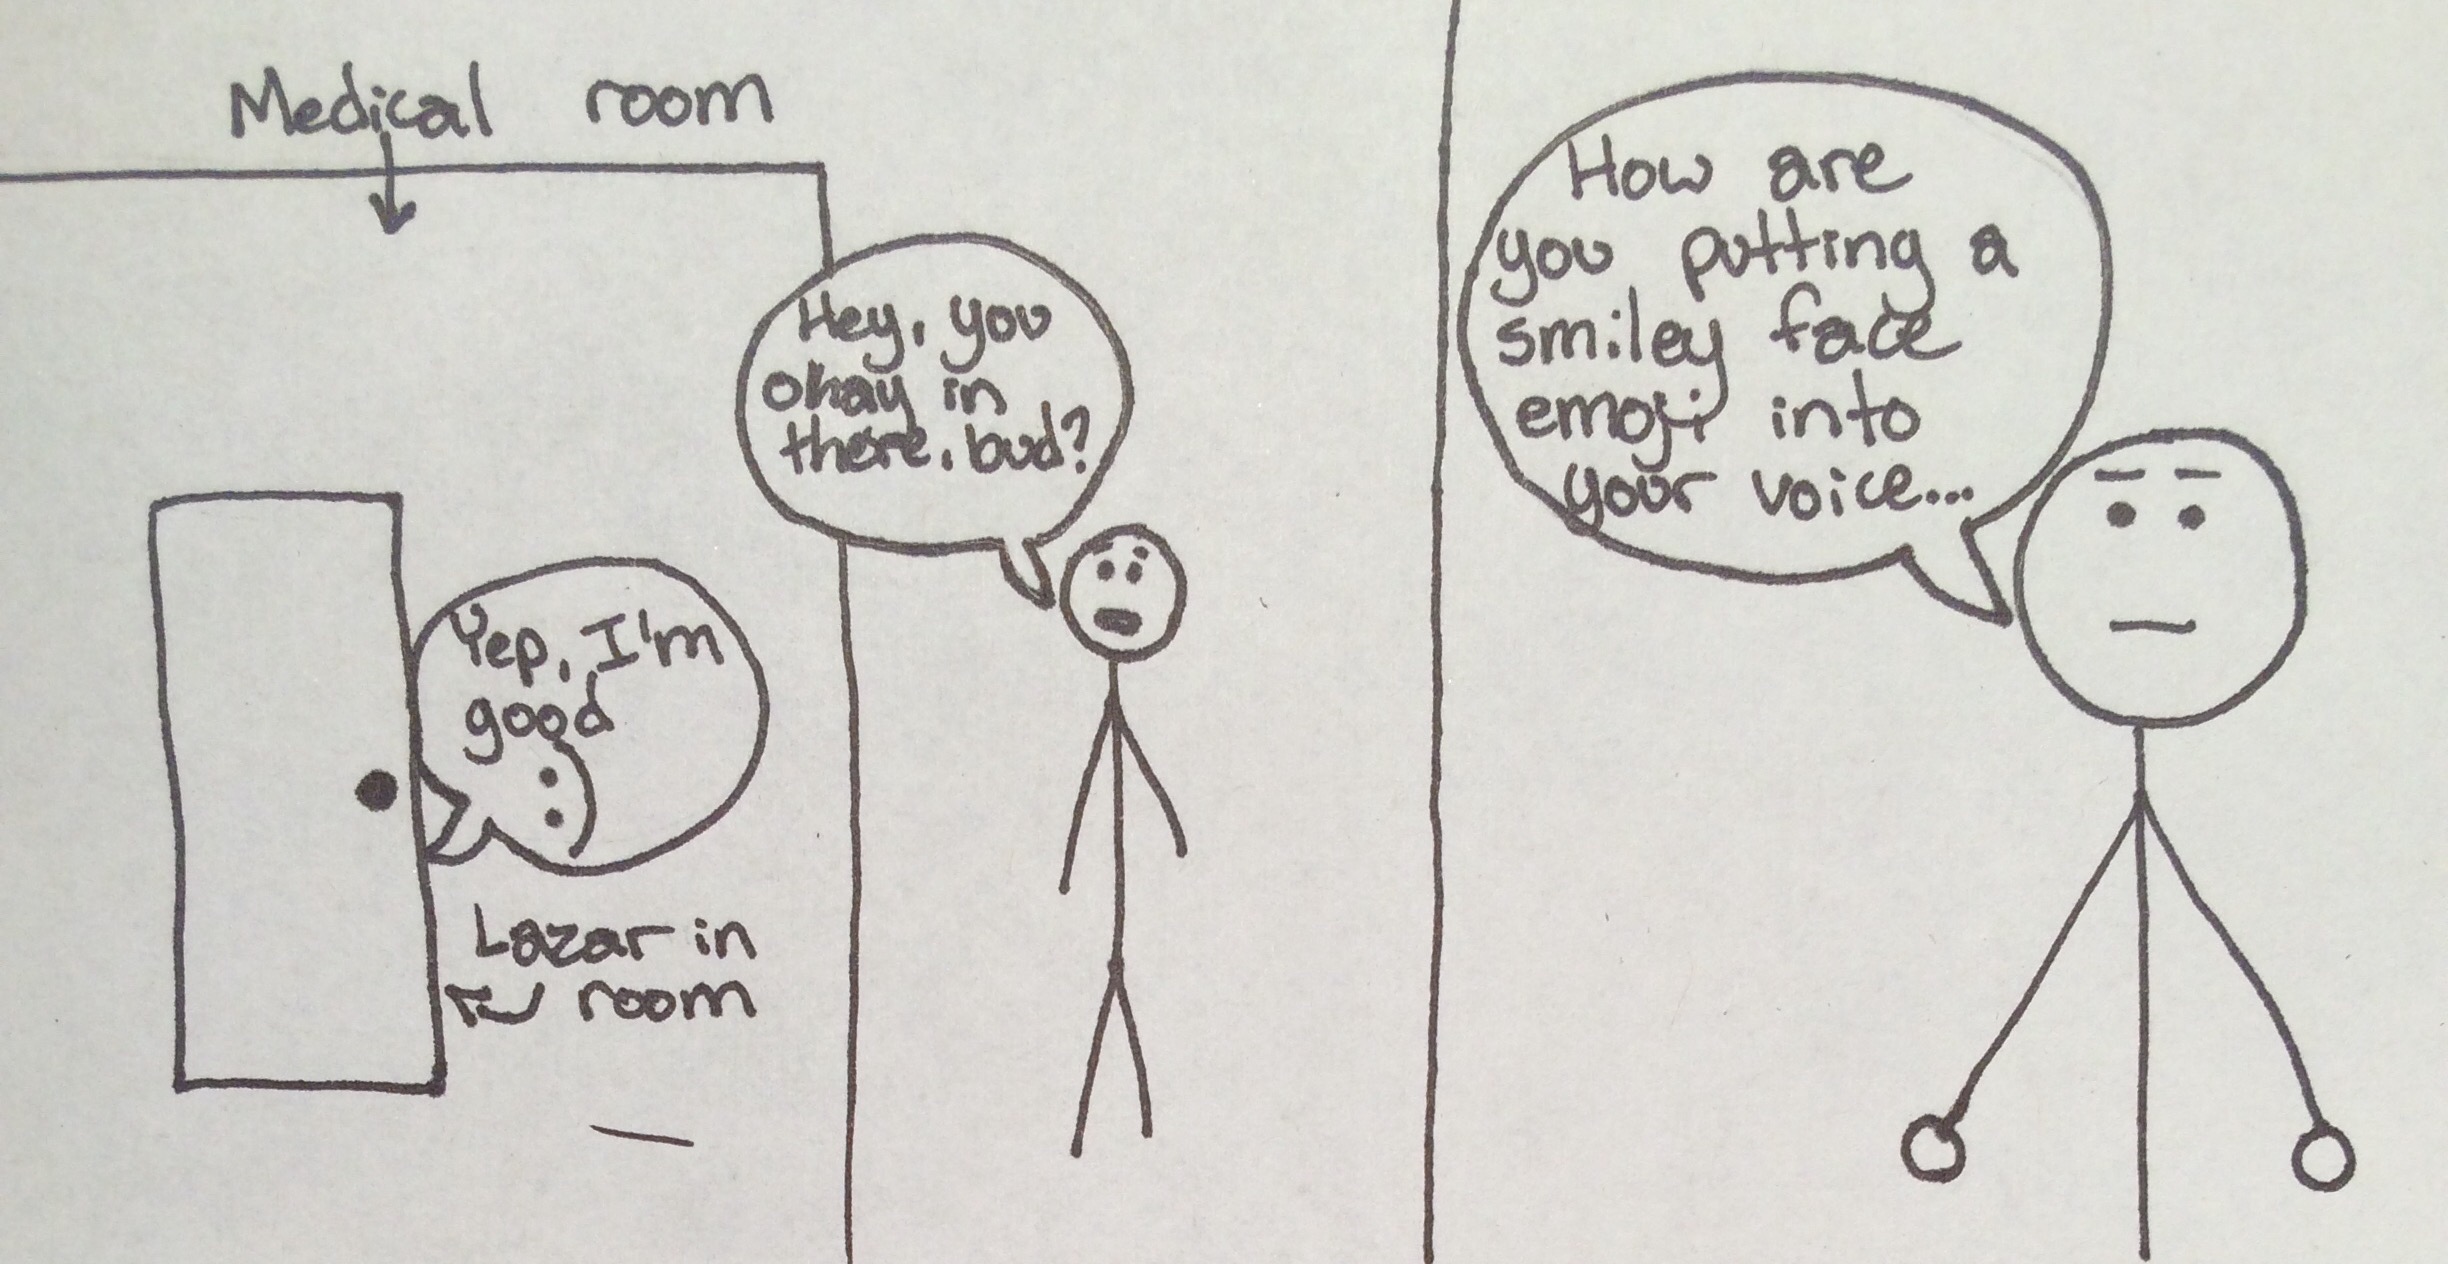 Medical room
Hey, you
okay in
there, bud?
Yep, I'm
good
:)
Lazar in
room
How are
you putting a
smiley face
emoji into
your voice...